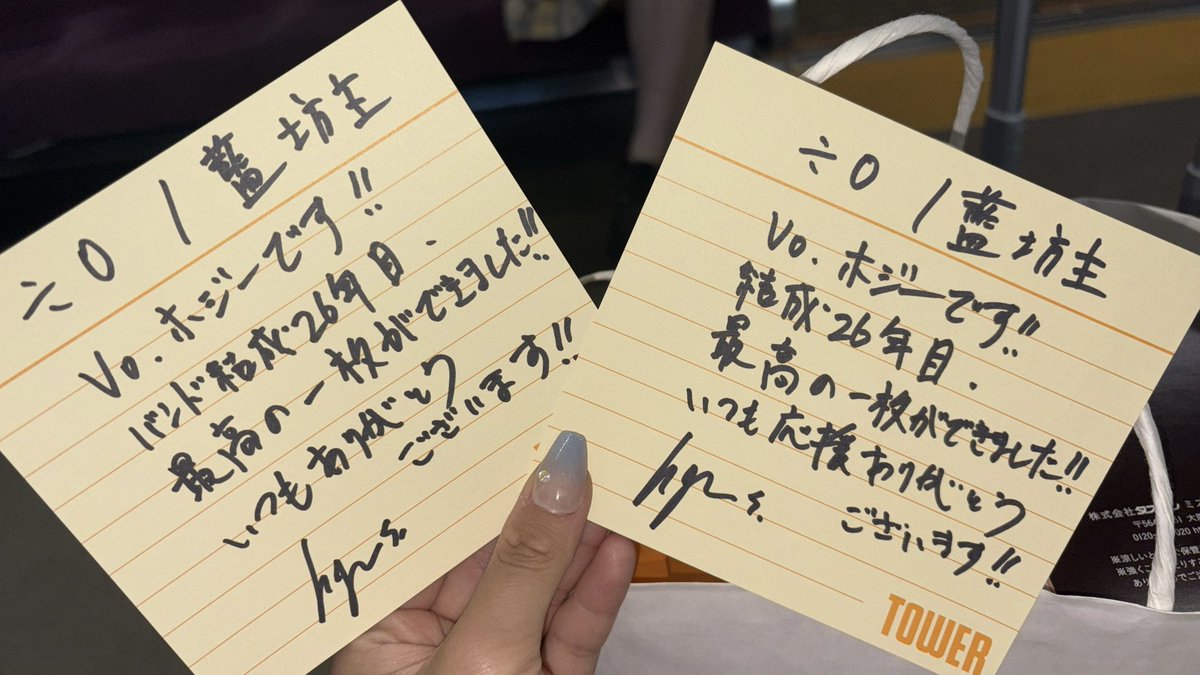 ÷0 / 藍坊主
Vo.ホジーです!!
バンド結成26年目.
最高の一枚ができました!!
いつもありがとう
ございます!!
÷0 / 藍坊主
Vo.ホジーです!!
結成26年目.
最高の一枚ができました!!
いつも応援ありがとう
ございます!!
TOWER
株式会社
〒564
0120-
※涼しい
※強く